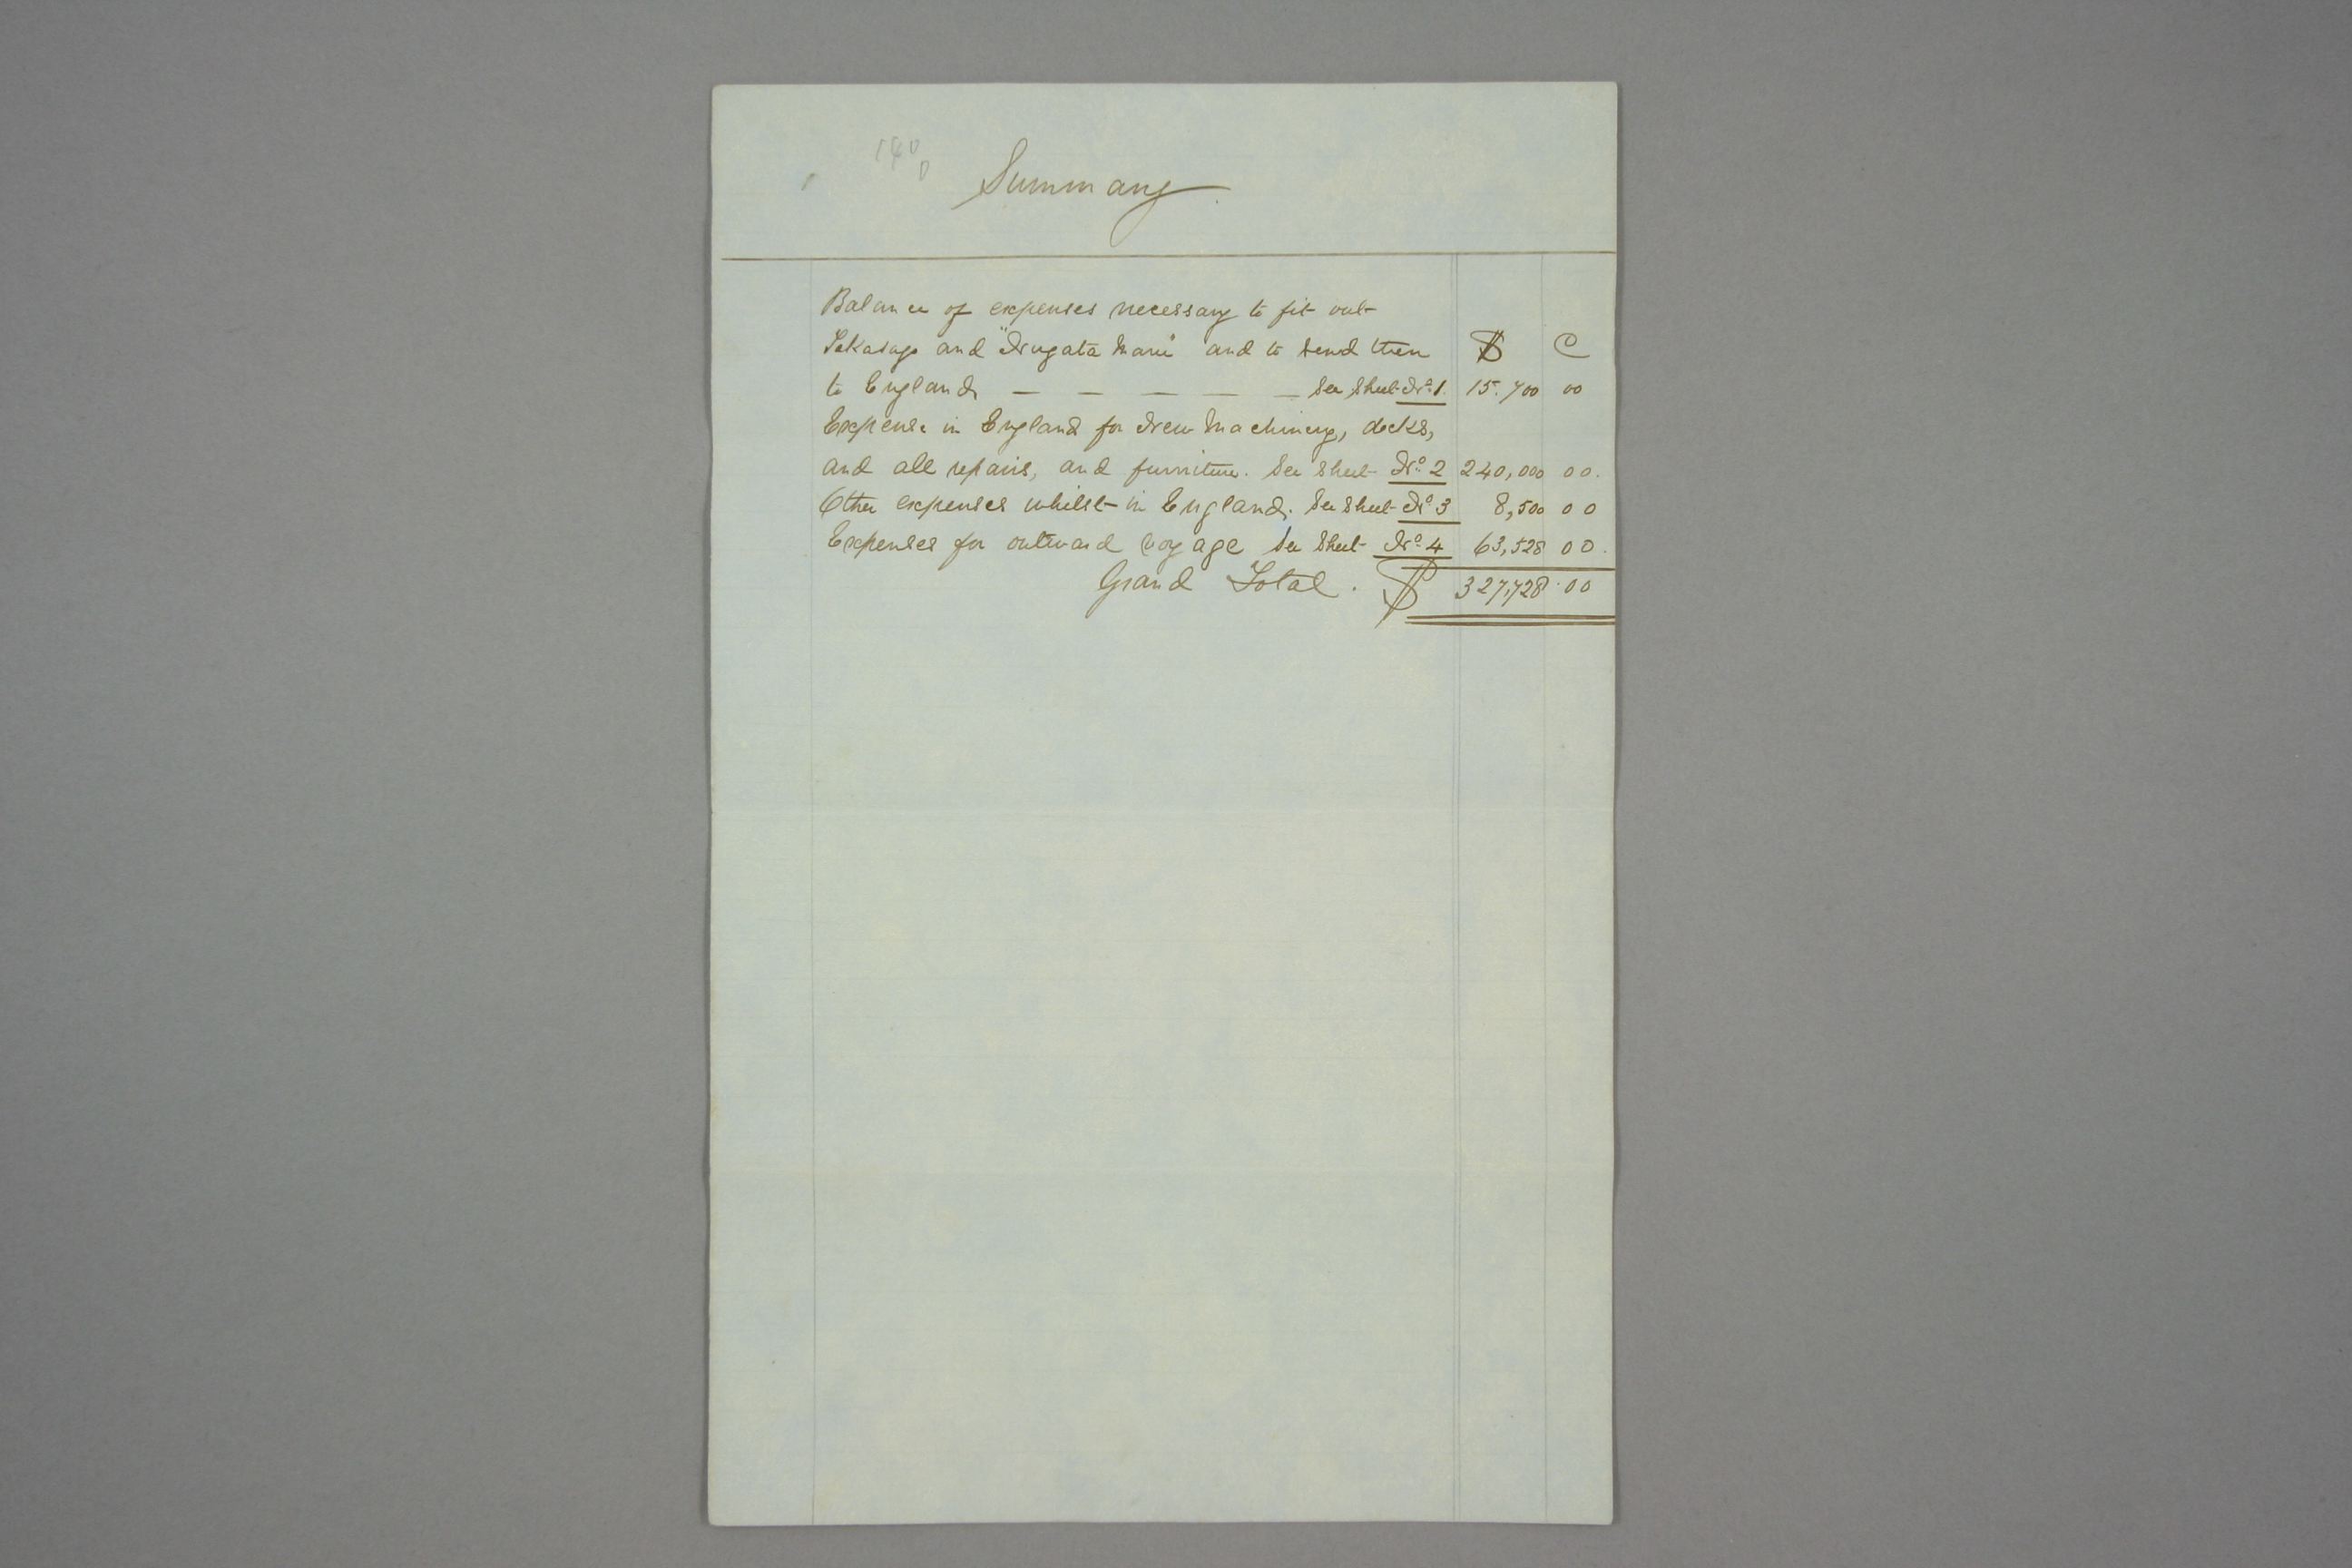 Summary
Balance of expenses necessary to fit out
Takasago and "Niigata Maru" and to send them $ C
to England — — — — — See Sheet No. 1. 15.700 00
Expense in England for New Machinery, decks,
and all repairs, and furniture. See Sheet No. 2 240,000 00.
Other expenses whilst in England. See Sheet No 3 8,500 00
Expenses for outward voyage See Sheet No. 4 63,528 00.
Grand Total. $ 327,728.00